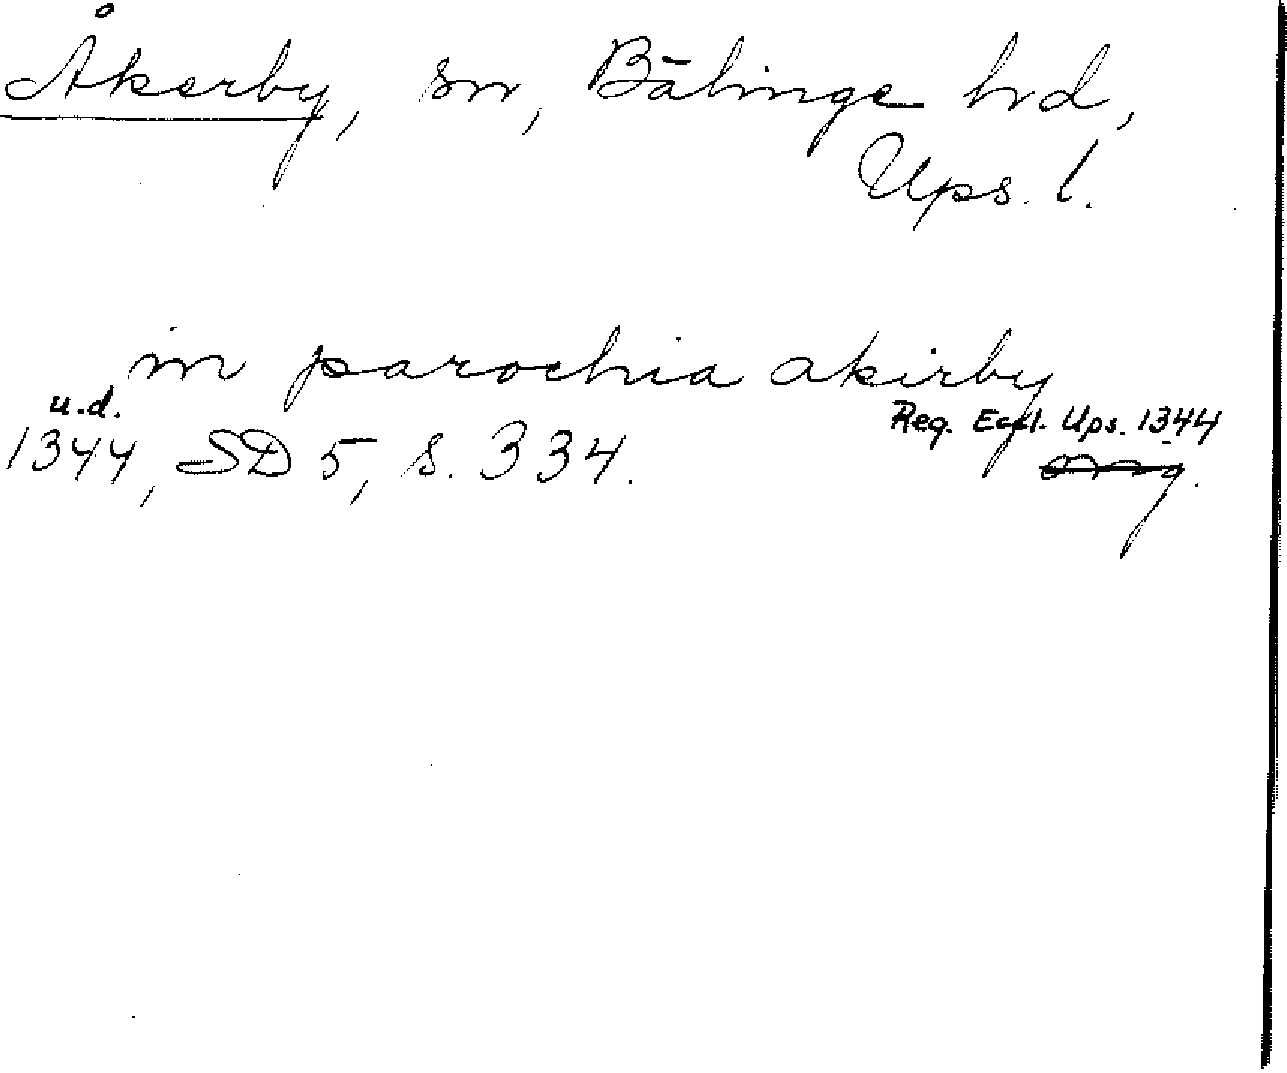 Åkerby, sn, Bälinge hd,
Ups. l.
in parochia akirby
u.d.
Reg. Eccl. Ups. 1344
1344, SD 5, s. 334.